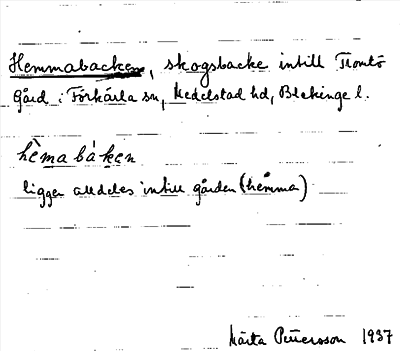 Hemmabacken, skogsbacke intill Tromtö
Gård i Förkärla sn, Medelstad hd, Blekinge l.
hèma bàken
ligger alldeles intill gården (hemma)
Märta Petersson 1937